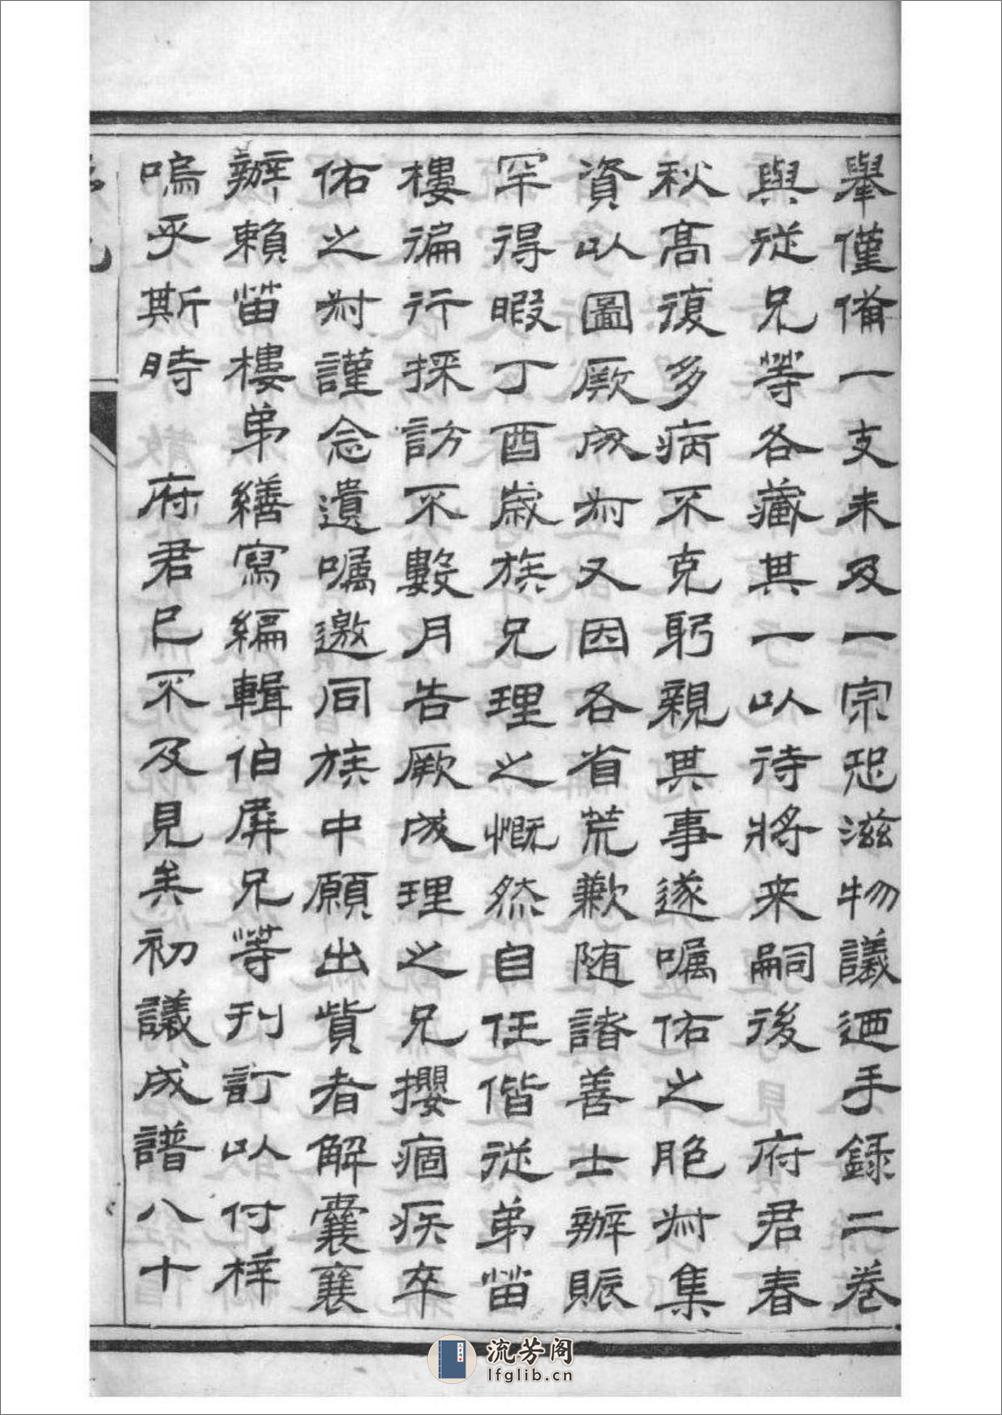 舉僅備一支未及一宗恐滋物議迺手録二巻
與從兄等各藏其一以待將来嗣後　府君春
秋高復多病不克躬親其事遂嘱佑之脆村集
資以圖厥成村又因各省荒歉随諸善士辦賑
罕得暇丁酉歲族兄理之慨然自任偕從弟笛
樓徧行採訪不數月告厥成理之兄攖痼疾卒
佑之村謹念遺嘱邀同族中願出貲者解囊襄
辦賴笛樓弟繕寫編輯伯屏兄等刊訂以付梓
嗚乎斯時　府君已不及見矣初議成譜八十
流芳阁
lfglib.cn